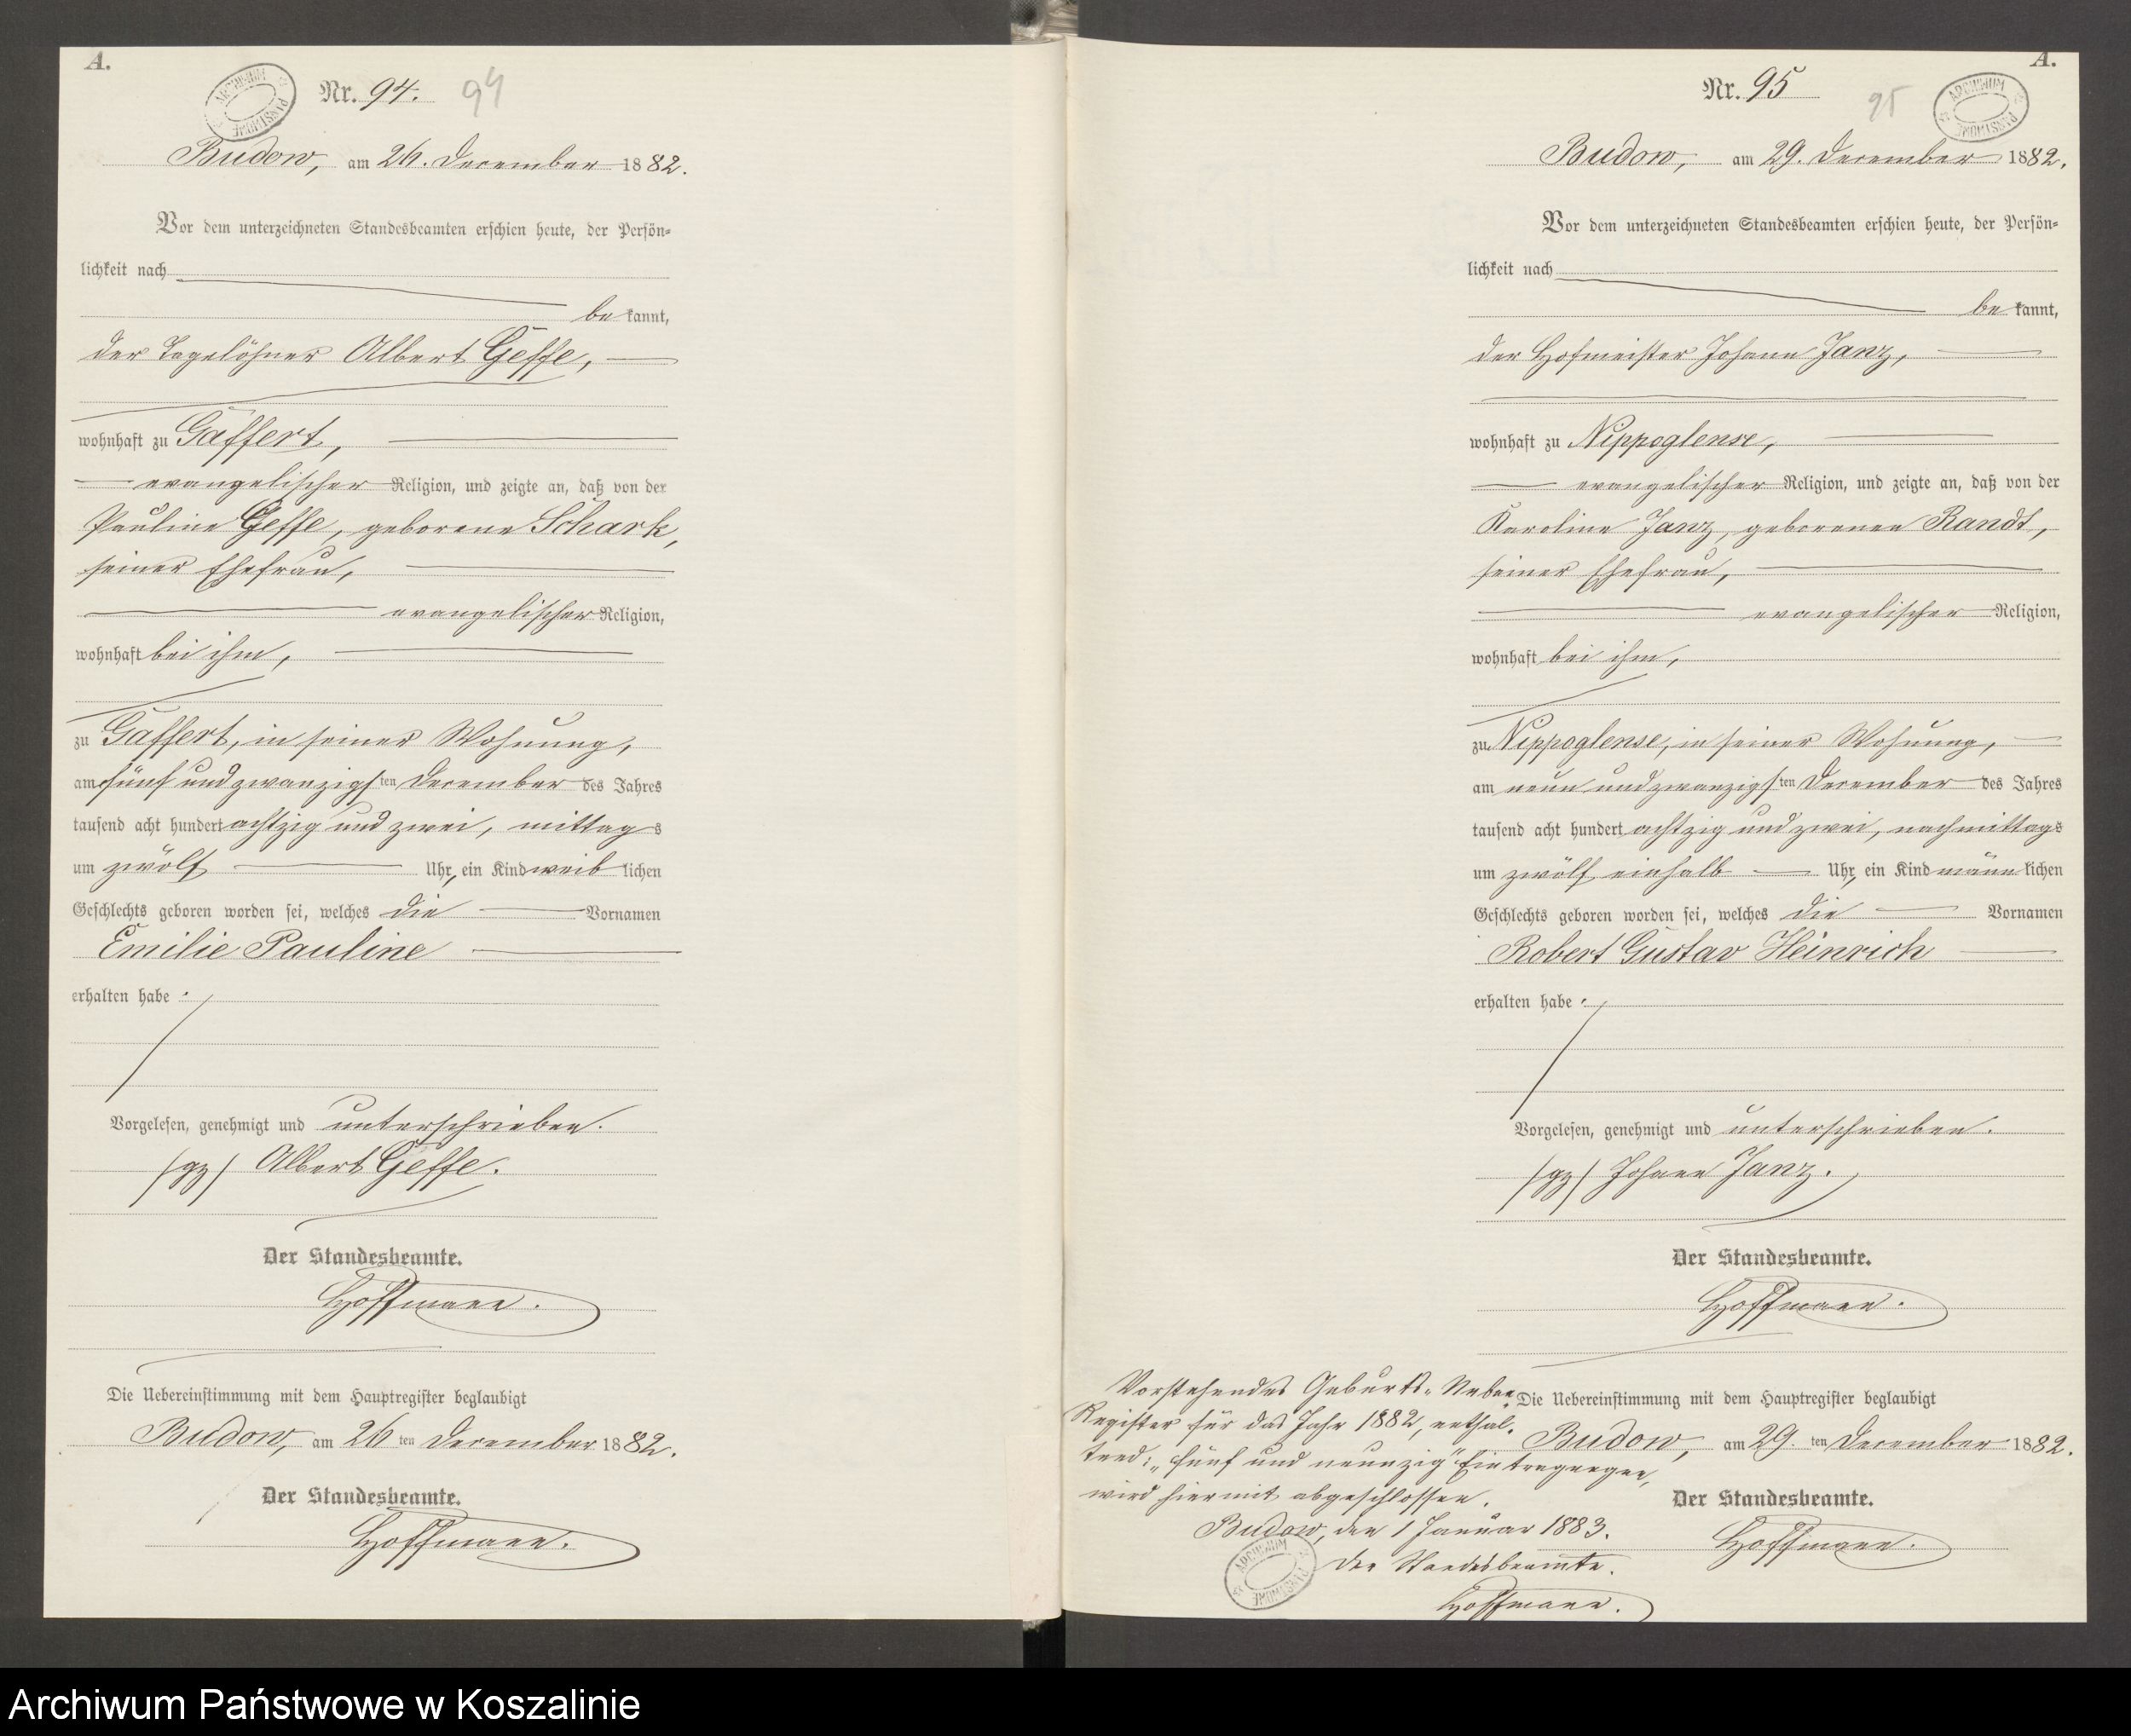 A.
Nr. 94. 94
ARCHIWUM PAŃSTWOWE
Budow, am 26. December 1882.
Vor dem unterzeichneten Standesbeamten erschien heute, der Persön-
lichkeit nach
be kannt,
der Tagelöhner Albert Geffe,
wohnhaft zu Gaffert,
evangelischer Religion, und zeigte an, daß von der
Pauline Geffe, geborene Schark,
seiner Ehefrau,
evangelischer Religion,
wohnhaft bei ihm,
zu Gaffert, in seiner Wohnung,
am fünf und zwanzigsten December des Jahres
tausend acht hundert achtzig und zwei, mittags
um zwölf Uhr, ein Kind weiblichen
Geschlechts geboren worden sei, welches die Vornamen
Emilie Pauline
erhalten habe.
Vorgelesen, genehmigt und unterschrieben.
/gz/ Albert Geffe.
Der Standesbeamte.
Hoffmann.
Die Uebereinstimmung mit dem Hauptregister beglaubigt
Budow, am 26ten December 1882.
Der Standesbeamte.
Hoffmann.
A.
Nr. 95 95
ARCHIWUM PAŃSTWOWE
Budow, am 29. December 1882.
Vor dem unterzeichneten Standesbeamten erschien heute, der Persön-
lichkeit nach
be kannt,
der Hofmeister Johann Janz,
wohnhaft zu Nippoglense,
evangelischer Religion, und zeigte an, daß von der
Karoline Janz, geborenen Randt,
seiner Ehefrau,
evangelischer Religion,
wohnhaft bei ihm,
zu Nippoglense, in seiner Wohnung,
am neun und zwanzigsten December des Jahres
tausend acht hundert achtzig und zwei, nachmittags
um zwölf einhalb Uhr, ein Kind männlichen
Geschlechts geboren worden sei, welches die Vornamen
Robert Gustav Heinrich
erhalten habe.
Vorgelesen, genehmigt und unterschrieben.
/gz/ Johann Janz.
Der Standesbeamte.
Hoffmann.
Die Uebereinstimmung mit dem Hauptregister beglaubigt
Budow, am 29. ten December 1882.
Der Standesbeamte.
Hoffmann.
Vorstehendes Geburts-Neben-
Register für das Jahr 1882, enthal-
tend: „fünf und neunzig" Eintragungen,
wird hiermit abgeschlossen.
Budow, den 1 Januar 1883.
Der Standesbeamte.
Hoffmann.
ARCHIWUM PAŃSTWOWE
Archiwum Państwowe w Koszalinie